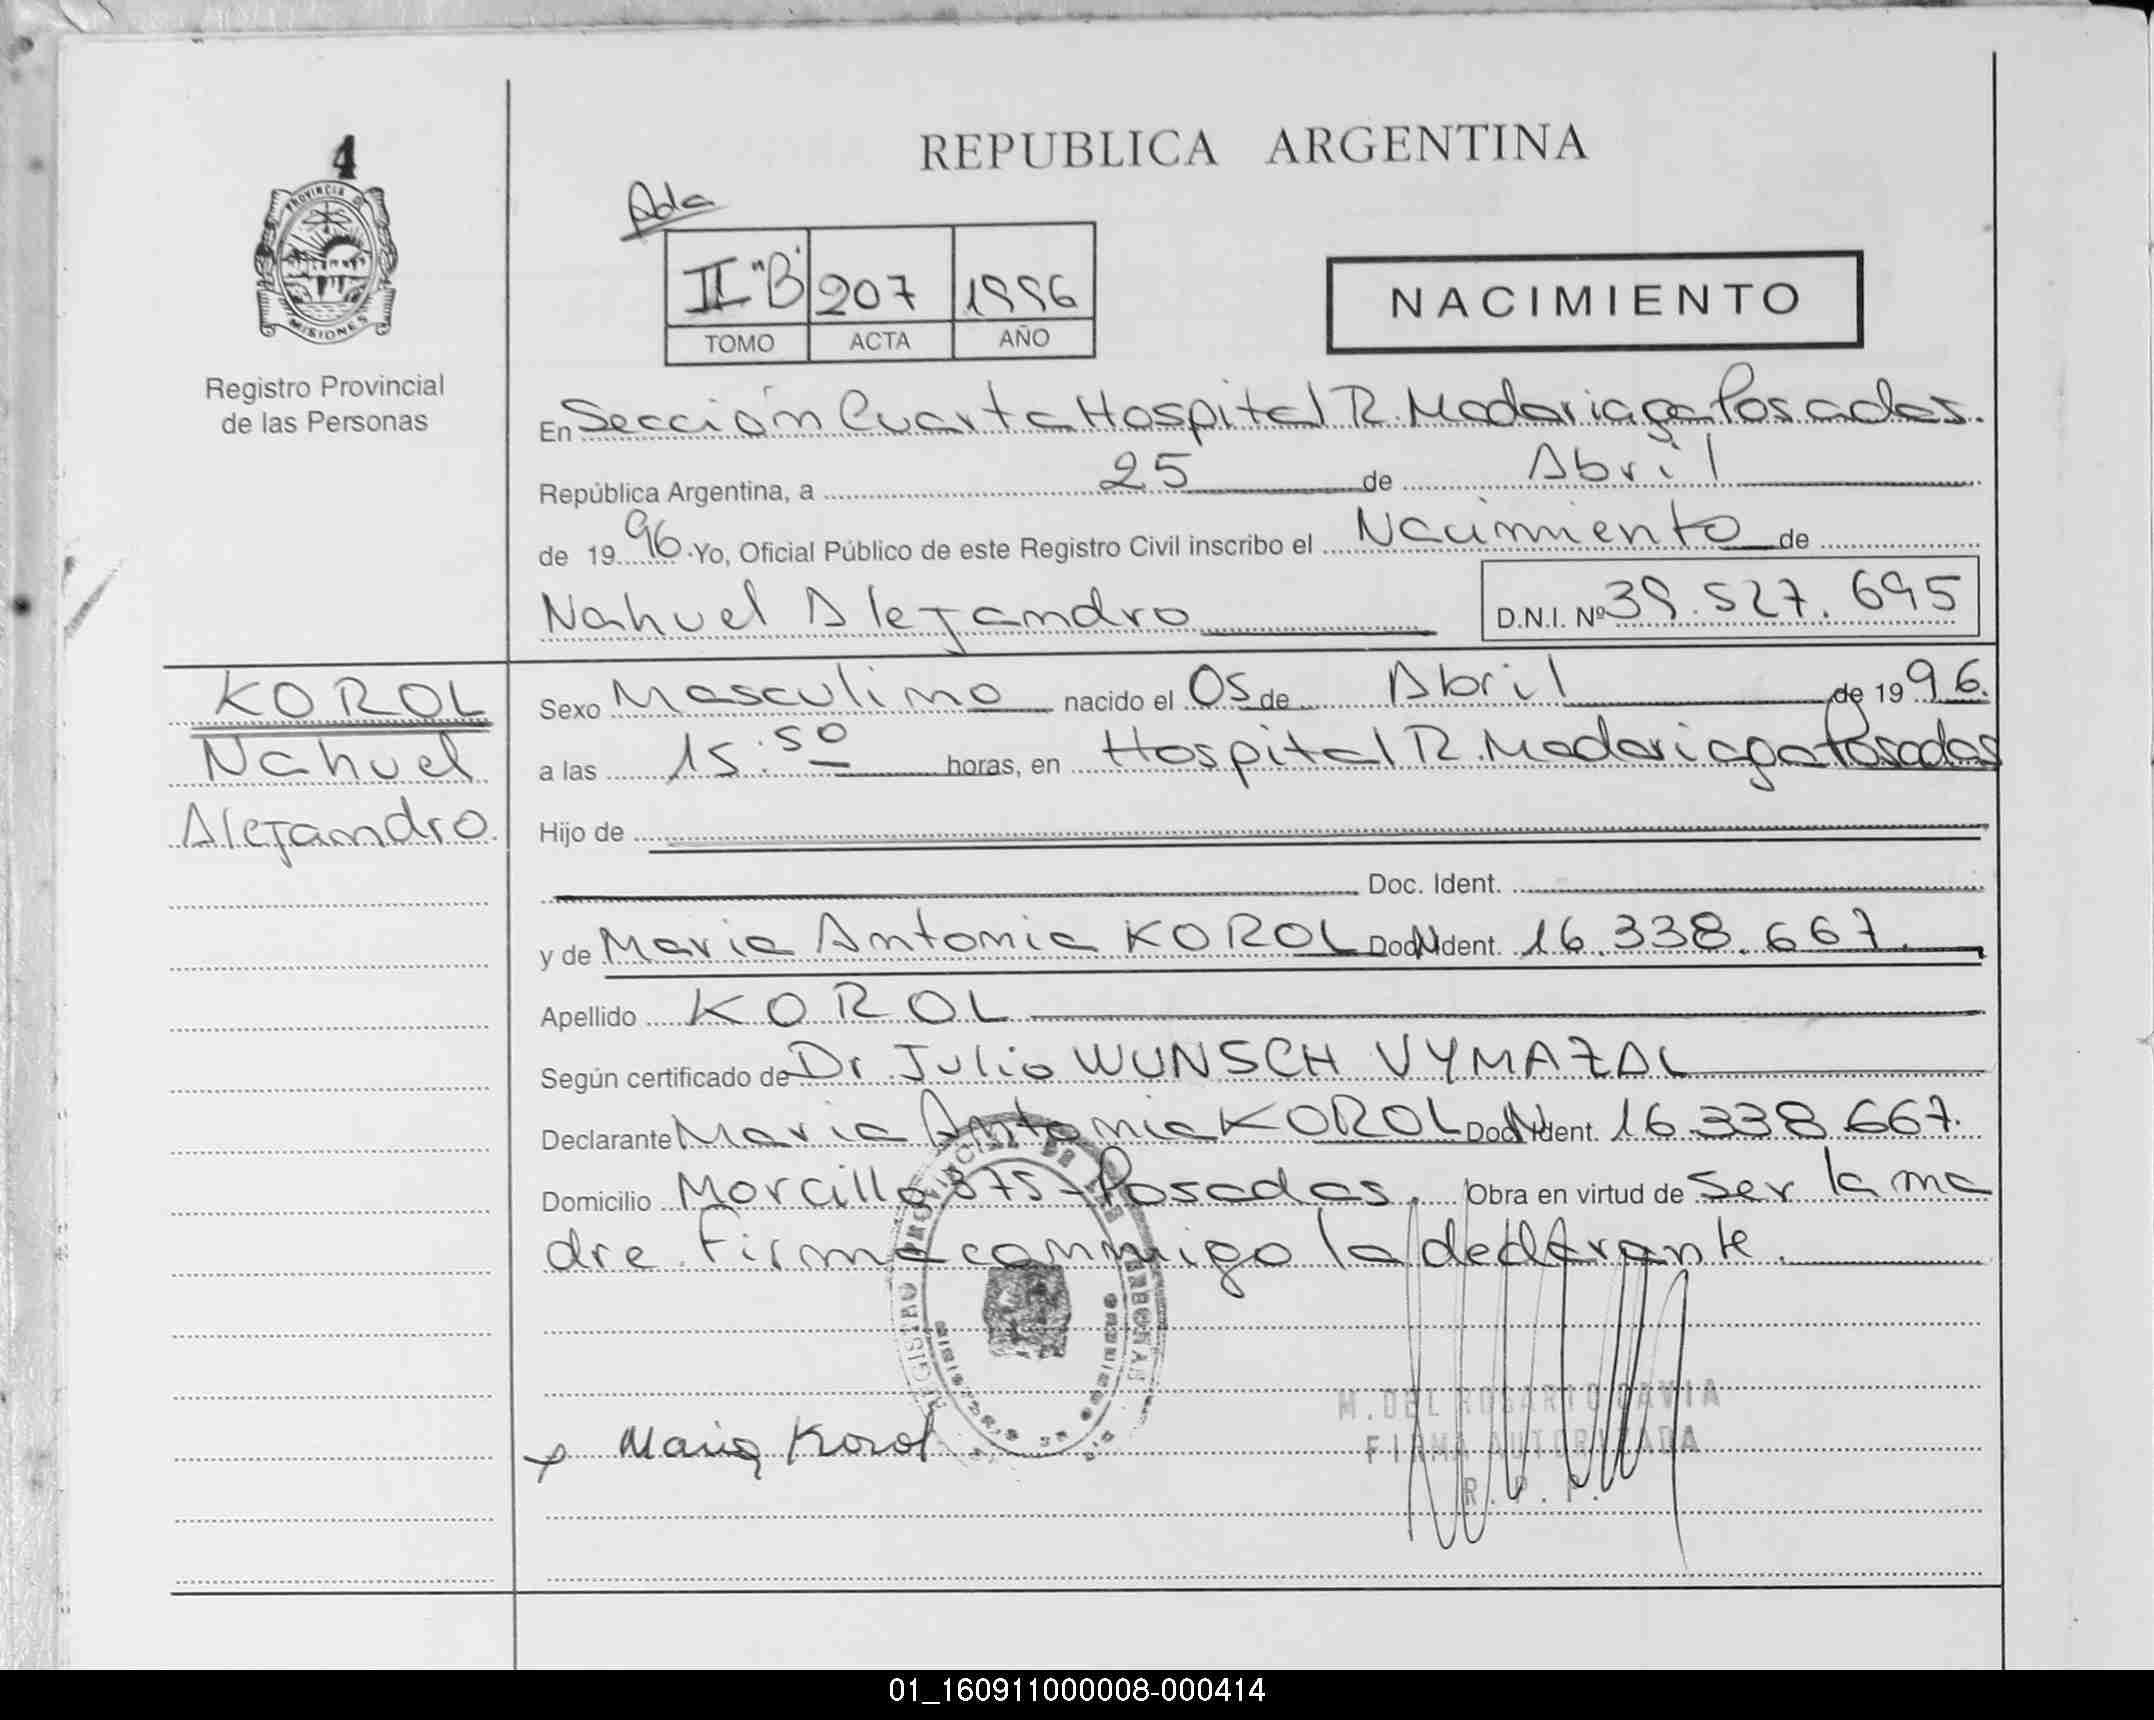 4
PROVINCIA DE
MISIONES
Registro Provincial
de las Personas
REPUBLICA ARGENTINA
II "B" 207 1996
TOMO ACTA AÑO
NACIMIENTO
En Sección Cuarta Hospital R. Madariaga Posadas.
República Argentina, a 25 de Abril
de 1996. Yo, Oficial Público de este Registro Civil inscribo el Nacimiento de
Nahuel Alejandro D.N.I. Nº 39.527.695
KOROL
Nahuel
Alejandro.
Sexo Masculino nacido el 05 de Abril de 1996.
a las 15.50 horas, en Hospital R. Madariaga Posadas
Hijo de
Doc. Ident.
y de Maria Antonia KOROL Doc. Ident. 16.338.667.
Apellido KOROL
Según certificado de Dr Julio WUNSCH VYMAZAL
Declarante Maria Antonia KOROL Doc. Ident. 16.338.667.
Domicilio Morcillo 375 - Posadas. Obra en virtud de Ser la ma
dre. Firma conmigo la declarante.
REGISTRO PROVINCIAL DE LAS PERSONAS
M. DEL ROSARIO GAVIA
FIRMA AUTORIZADA
R. P. P.
x Maria Korol
01_160911000008-000414